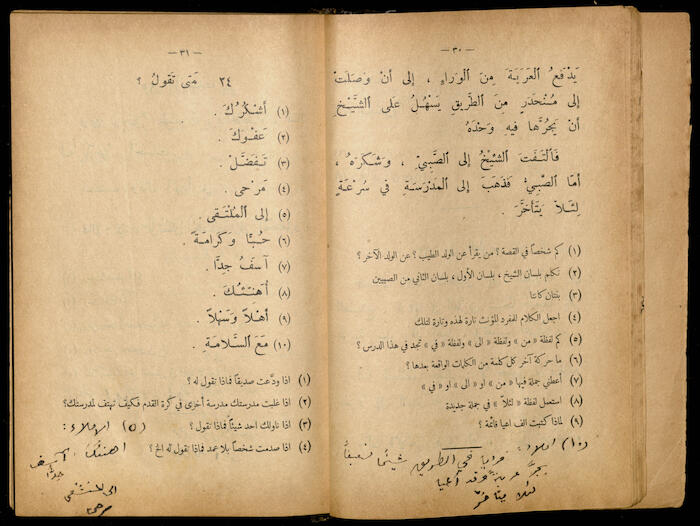 — ٣٠ —
يَدْفَعُ ٱلْعَرَبَةَ مِنَ ٱلْوَرَاءِ ، إِلَى أَنْ وَصَلَتْ
إِلى مُنْحَدَرٍ مِنَ الطَّرِيقِ يَسْهُلُ عَلَى ٱلشَّيْخِ
أَنْ يَجُرَّهَا فِيهِ وَحْدَهُ
فَٱلْتَفَتَ ٱلشَّيْخُ إِلَى ٱلصَّبِيِّ ، وَشَكَرَهُ ،
أَمَّا ٱلصَّبِيُّ فَذَهَبَ إِلَى ٱلْمَدْرَسَةِ فِي سُرْعَةٍ
لِئَلاَّ يَتَأَخَّرَ .
(١) كم شخصاً في القصة ؟ من يقرأ عن الولد الطيب ؟ عن الولد الآخر ؟
(٢) تكلم بلسان الشيخ ، بلسان الأول ، بلسان الثاني من الصبيين
(٣) بنتان كانتا
(٤) اجعل الكلام للمفرد المؤنث تارة لهذه وتارة لتلك
(٥) كم لفظة « من » ولفظة « الى » ولفظة « في » تجد في هذا الدرس ؟
(٦) ما حركة آخر كل كلمة من الكلمات الواقعة بعدها ؟
(٧) أعطني جملة فيها « من » او « الى » او « في »
(٨) استعمل لفظة « لئلاّ » في جملة جديدة
(٩) لماذا كتبت الف اعيا قائمة ؟
املاء: في الطريق شيخاً ضعيفاً
يجرّ عربة وقد أعيا
لئلا يتأخّر
— ٣١ —
٢٤ مَتى تَقُولُ ؟
(١) أَشْكُرُكَ .
(٢) عَفْوَكَ .
(٣) تَفَضَّلْ .
(٤) مَرْحى .
(٥) إِلَى ٱلْمُلْتَقَى .
(٦) حُبًّا وَكَرَامَةً .
(٧) آسَفُ جِدًّا .
(٨) أُهَنِّئُكَ .
(٩) أَهْلاً وَسَهْلاً .
(١٠) مَعَ ٱلسَّلاَمَةِ .
(١) اذا ودّعت صديقاً فماذا تقول له ؟
(٢) اذا غلبت مدرستك مدرسة أخرى في كرة القدم فكيف تهتف لمدرستك؟
(٣) اذا ناولك احد شيئاً فماذا تقول ؟
(٤) اذا صدمت شخصاً بلا عمد فماذا تقول له الخ ؟
(٥) الاملاء:
اهنئك آسف
جداً
مرحى